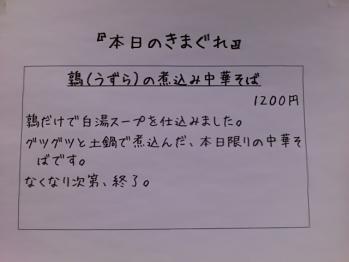 『本日のきまぐれ』
鶉(うずら)の煮込み中華そば
1200円
鶉だけで白湯スープを仕込みました。
グツグツと土鍋で煮込んだ、本日限りの中華そ
ばです。
なくなり次第、終了。